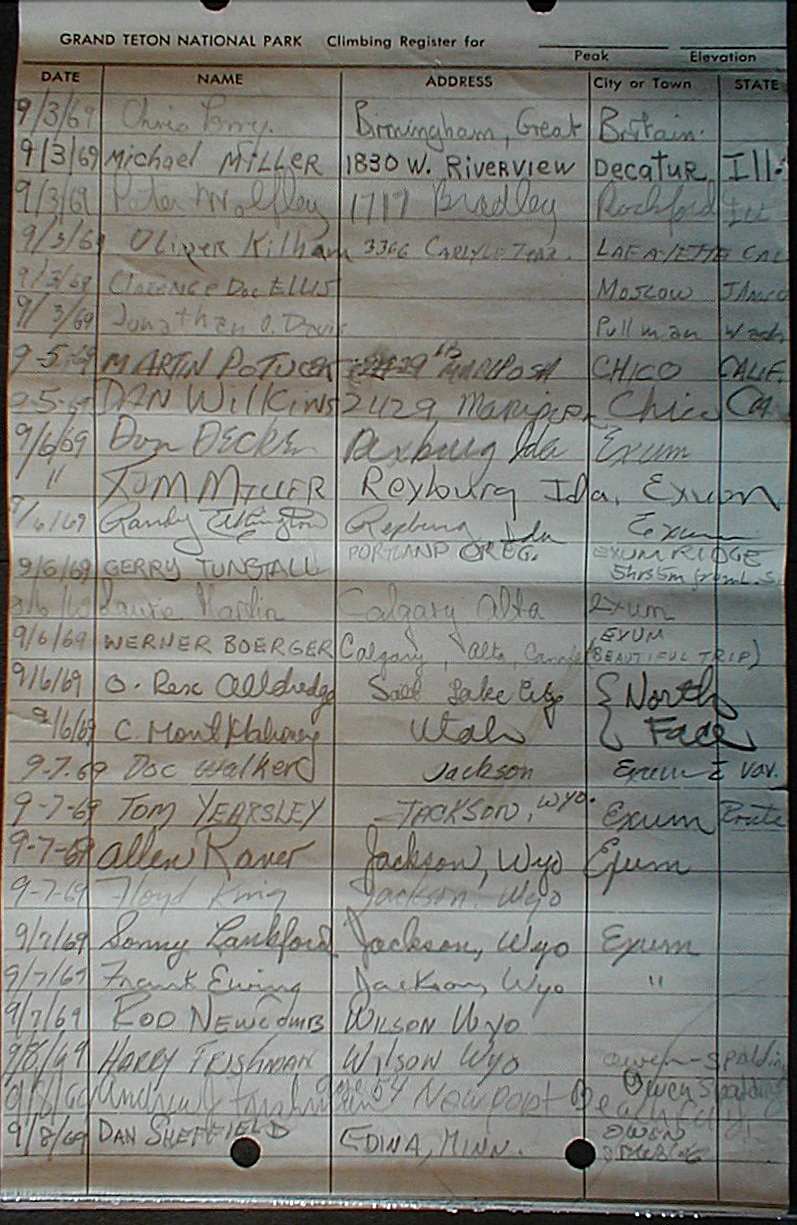 GRAND TETON NATIONAL PARK Climbing Register for
Peak Elevation
DATE NAME ADDRESS City or Town STATE
9/3/69 Chris Birmingham, Great Britain.
9/3/69 Michael MILLER 1830 W. RIVERVIEW DECATUR Ill.
9/3/69 Peter Wolfley 1717 Bradley Rockford Ill
9/3/69 Oliver Kilham 3366 CARLYLE TERR. LAFAYETTE CAL
9/3/69 CLARENCE Doc ELLIS Moscow
9/3/69 Jonathan O. Davis Pullman Wash
9-5-69 MARTIN POTUCEK 2429 MARIPOSA CHICO CALIF.
9-5-69 DAN Wilkins 2429 Mariposa Chico CA
9/6/69 Don DECKER Rexburg Ida Exum
" TOM MILLER Rexburg Ida, Exum
9/6/69 Randy Rexburg, Ida Exum
PORTLAND OREG. EXUM RIDGE
9/6/69 GERRY TUNSTALL 5hrs5m from L.S.
9/6/69 Laurie Martin Calgary Alta Exum
EXUM
9/6/69 WERNER BOERGER Calgary, Alta, Canada (BEAUTIFUL TRIP)
9/6/69 O. Rex Alldredge Salt Lake City { North
9/6/69 C. Mont Mahoney Utah Face
9-7-69 Doc Walker Jackson Exum
9-7-69 TOM YEARSLEY JACKSON, WYO. Exum Route
9-7-69 Allen Raver Jackson, Wyo Exum
9-7-69 Floyd King Jackson, Wyo
9/7/69 Sonny Lankford Jackson, Wyo Exum
9/7/69 Frank Ewing Jackson, Wyo "
9/7/69 ROD NEWCOMB WILSON WYO
9/8/69 HARRY FRISHMAN WILSON WYO Owen-Spalding
9/8/69 Newport Beach Calif. Owen Spalding
9/8/69 DAN SHEFFIELD EDINA, MINN. OWEN
SPALDING